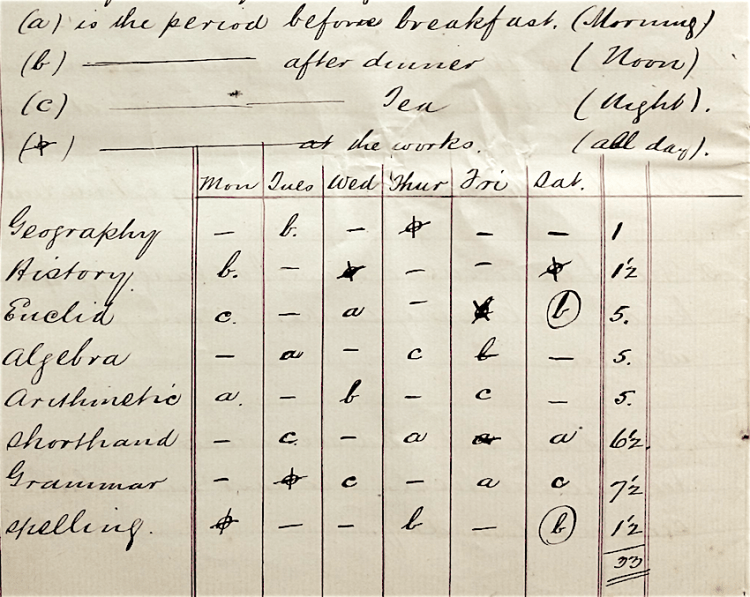 (a) is the period before breakfast. (Morning)
(b) ——— after dinner (Noon)
(c) ——— Tea (Night).
(ф) ——— at the works. (all day).
Mon Tues Wed Thur Fri Sat.
Geography – b. – ф – – 1
History. b. – ф – – ф 1½
Euclid c. – a – b 5.
Algebra – a – c b – 5.
Arithmetic a. – b – c – 5.
Shorthand – c. – a a a 6½
Grammar – ф c – a c 7½
Spelling. ф – – b – b 1½
33